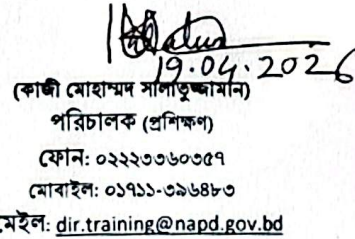 19.04.2026
(কাজী মোহাম্মদ সালাতুজ্জামান)
পরিচালক (প্রশিক্ষণ)
ফোন: ০২২২৩৩৬০৩৫৭
মোবাইল: ০১৭১১-৩৯৬৪৮৩
মেইল: dir.training@napd.gov.bd